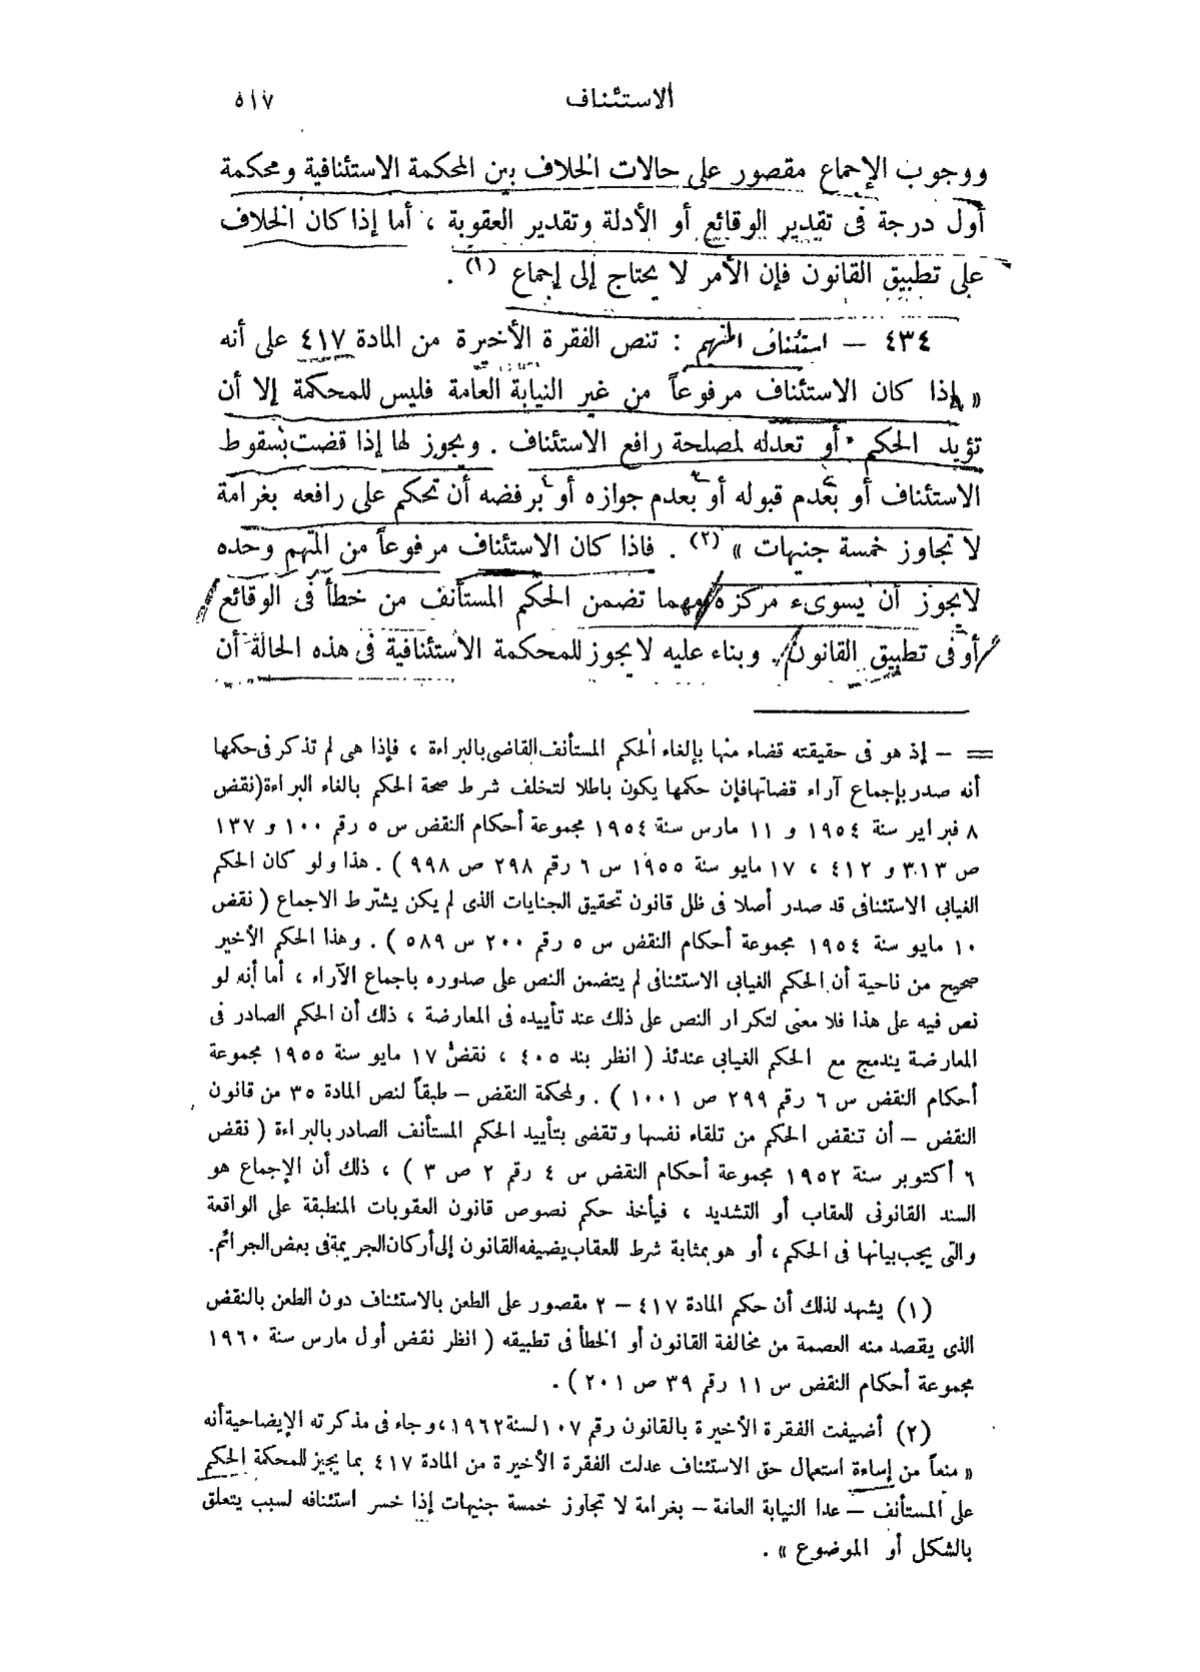 الاستئناف ٥١٧
ووجوب الإجماع مقصور على حالات الخلاف بين المحكمة الاستئنافية ومحكمة
أول درجة فى تقدير الوقائع أو الأدلة وتقدير العقوبة ، أما إذا كان الخلاف
على تطبيق القانون فإن الأمر لا يحتاج إلى إجماع (١) .
٤٣٤ – استئناف المتهم : تنص الفقرة الأخيرة من المادة ٤١٧ على أنه
« إذا كان الاستئناف مرفوعاً من غير النيابة العامة فليس للمحكمة إلا أن
تؤيد الحكم أو تعدله لمصلحة رافع الاستئناف . ويجوز لها إذا قضت بسقوط
الاستئناف أو بعدم قبوله أو بعدم جوازه أو برفضه أن تحكم على رافعه بغرامة
لا تجاوز خمسة جنيهات » (٢) . فاذا كان الاستئناف مرفوعاً من المتهم وحده
لايجوز أن يسوىء مركزه مهما تضمن الحكم المستأنف من خطأ فى الوقائع
أو فى تطبيق القانون . وبناء عليه لا يجوز للمحكمة الاستئنافية فى هذه الحالة أن
= – إذ هو فى حقيقته قضاء منها بإلغاء الحكم المستأنف القاضى بالبراءة ، فإذا هى لم تذكر فى حكمها
أنه صدر بإجماع آراء قضاتها فإن حكمها يكون باطلا لتخلف شرط صحة الحكم بالغاء البراءة (نقض
٨ فبراير سنة ١٩٥٤ و ١١ مارس سنة ١٩٥٤ مجموعة أحكام النقض س ٥ رقم ١٠٠ و ١٣٧
ص ٣٠١٣ و ٤١٢ ، ١٧ مايو سنة ١٩٥٥ س ٦ رقم ٢٩٨ ص ٩٩٨ ) . هذا ولو كان الحكم
الغيابى الاستئنافى قد صدر أصلا فى ظل قانون تحقيق الجنايات الذى لم يكن يشترط الاجماع ( نقض
١٠ مايو سنة ١٩٥٤ مجموعة أحكام النقض س ٥ رقم ٢٠٠ س ٥٨٩ ) . وهذا الحكم الأخير
صحيح من ناحية أن الحكم الغيابى الاستئنافى لم يتضمن النص على صدوره باجماع الآراء ، أما أنه لو
نص فيه على هذا فلا معنى لتكرار النص على ذلك عند تأييده فى المعارضة ، ذلك أن الحكم الصادر فى
المعارضة يندمج مع الحكم الغيابى عندئذ ( انظر بند ٤٠٥ ، نقض ١٧ مايو سنة ١٩٥٥ مجموعة
أحكام النقض س ٦ رقم ٢٩٩ ص ١٠٠١ ) . ولمحكمة النقض – طبقاً لنص المادة ٣٥ من قانون
النقض – أن تنقض الحكم من تلقاء نفسها وتقضى بتأييد الحكم المستأنف الصادر بالبراءة ( نقض
٦ أكتوبر سنة ١٩٥٢ مجموعة أحكام النقض س ٤ رقم ٢ ص ٣ ) ، ذلك أن الإجماع هو
السند القانونى للعقاب أو التشديد ، فيأخذ حكم نصوص قانون العقوبات المنطبقة على الواقعة
والتى يجب بيانها فى الحكم ، أو هو بمثابة شرط للعقاب يضيفه القانون إلى أركان الجريمة فى بعض الجرائم.
(١) يشهد لذلك أن حكم المادة ٤١٧ – ٢ مقصور على الطعن بالاستئناف دون الطعن بالنقض
الذى يقصد منه العصمة من مخالفة القانون أو الخطأ فى تطبيقه ( انظر نقض أول مارس سنة ١٩٦٠
مجموعة أحكام النقض س ١١ رقم ٣٩ ص ٢٠١ ) .
(٢) أضيفت الفقرة الأخيرة بالقانون رقم ١٠٧ لسنة ١٩٦٢، وجاء فى مذكرته الإيضاحية أنه
« منعاً من إساءة استعمال حق الاستئناف عدلت الفقرة الأخيرة من المادة ٤١٧ بما يجيز للمحكمة الحكم
على المستأنف – عدا النيابة العامة – بغرامة لا تجاوز خمسة جنيهات إذا خسر استئنافه لسبب يتعلق
بالشكل أو الموضوع » .